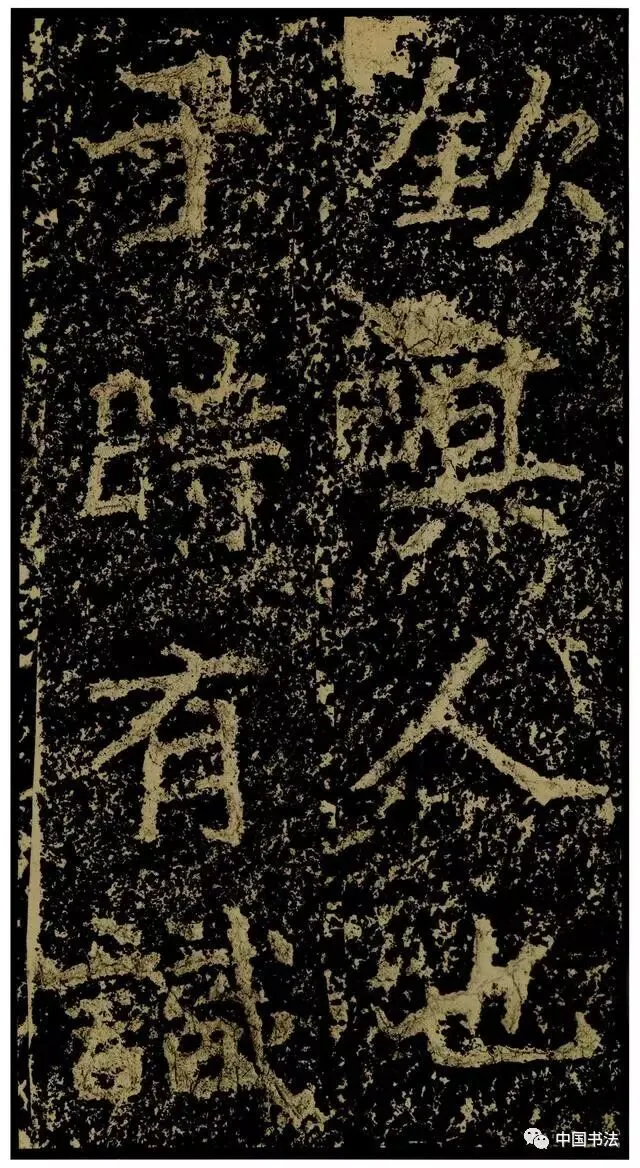 欽真人也
于時有識
中国书法